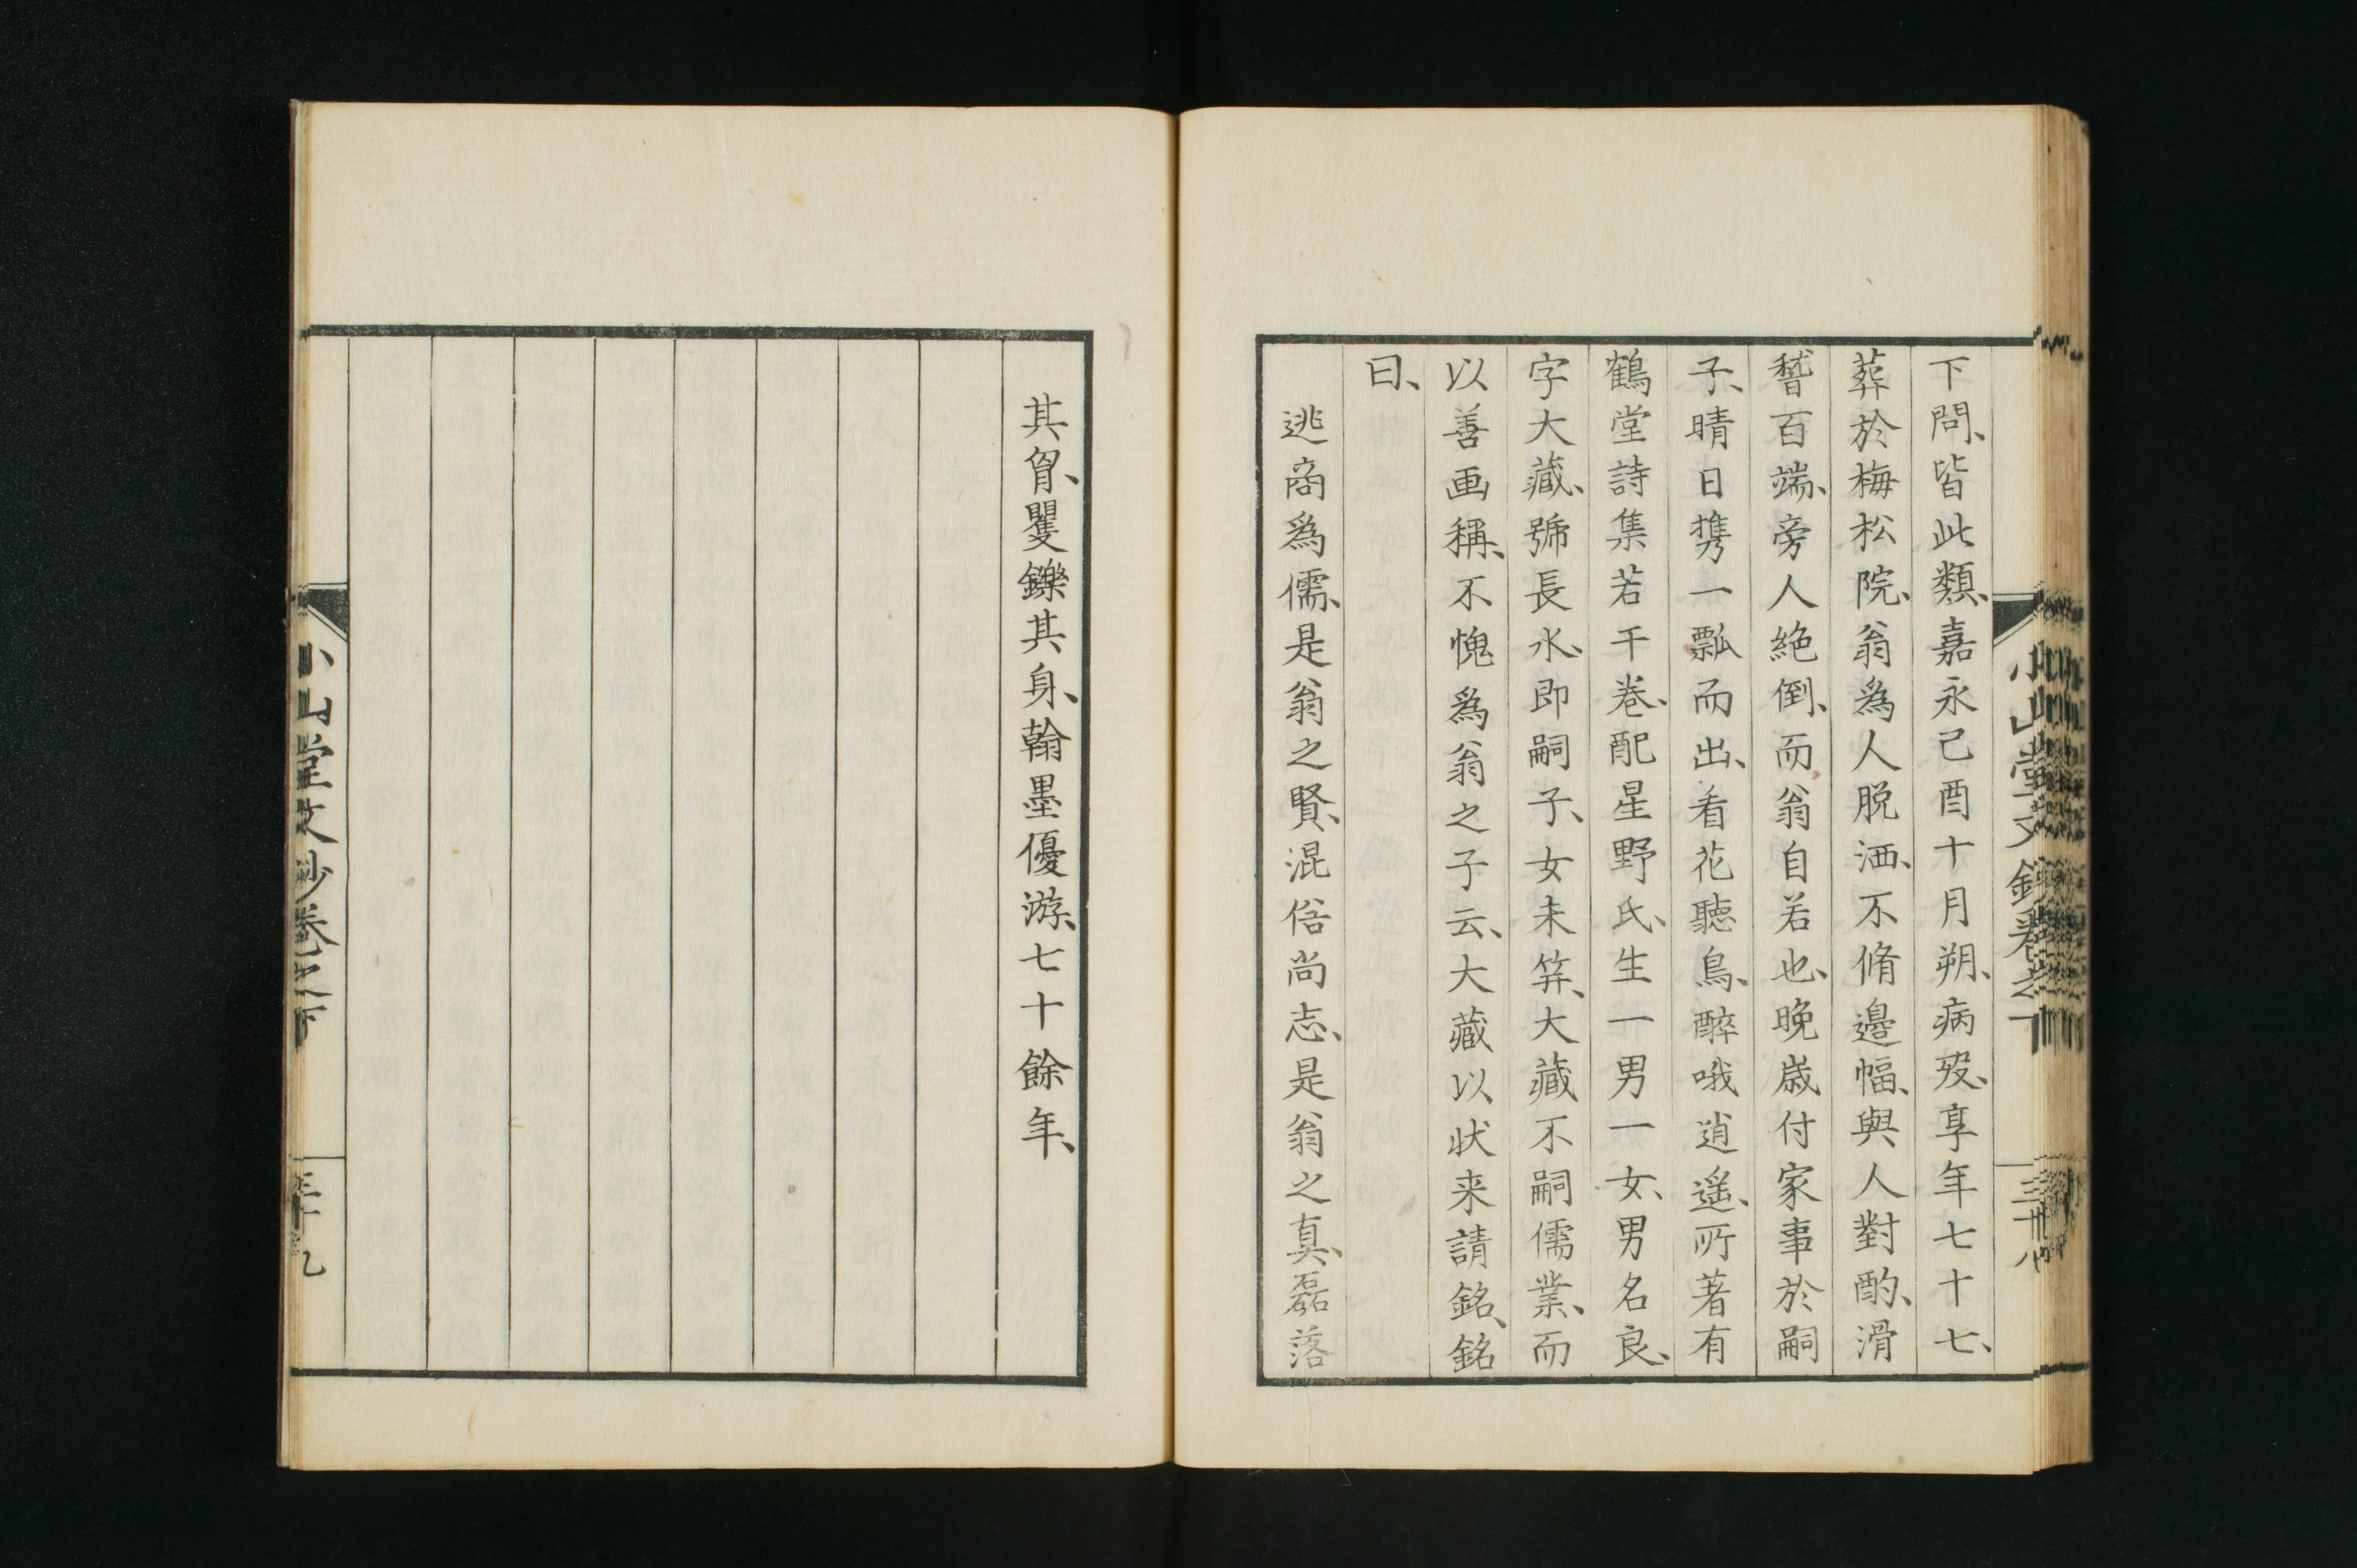 下問、皆此類、嘉永己酉十月朔、病歿、享年七十七、
葬於梅松院、翁爲人脱洒、不脩邉幅、與人對酌、滑
稽百端、旁人絶倒、而翁自若也、晩歳付家事於嗣
子、晴日携一瓢而出、看花聽鳥、醉哦逍遥、所著有
鶴堂詩集若干卷、配星野氏、生一男一女、男名良、
字大藏、號長水、即嗣子、女未筓、大藏不嗣儒業、而
以善画稱、不愧爲翁之子云、大藏以状来請銘、銘
曰、
逃商爲儒、是翁之賢、混俗尚志、是翁之真、磊落
小山堂文鈔卷之下
三十八
其胷、矍鑠其身、翰墨優游、七十餘年、
小山堂文鈔卷之下
三十九